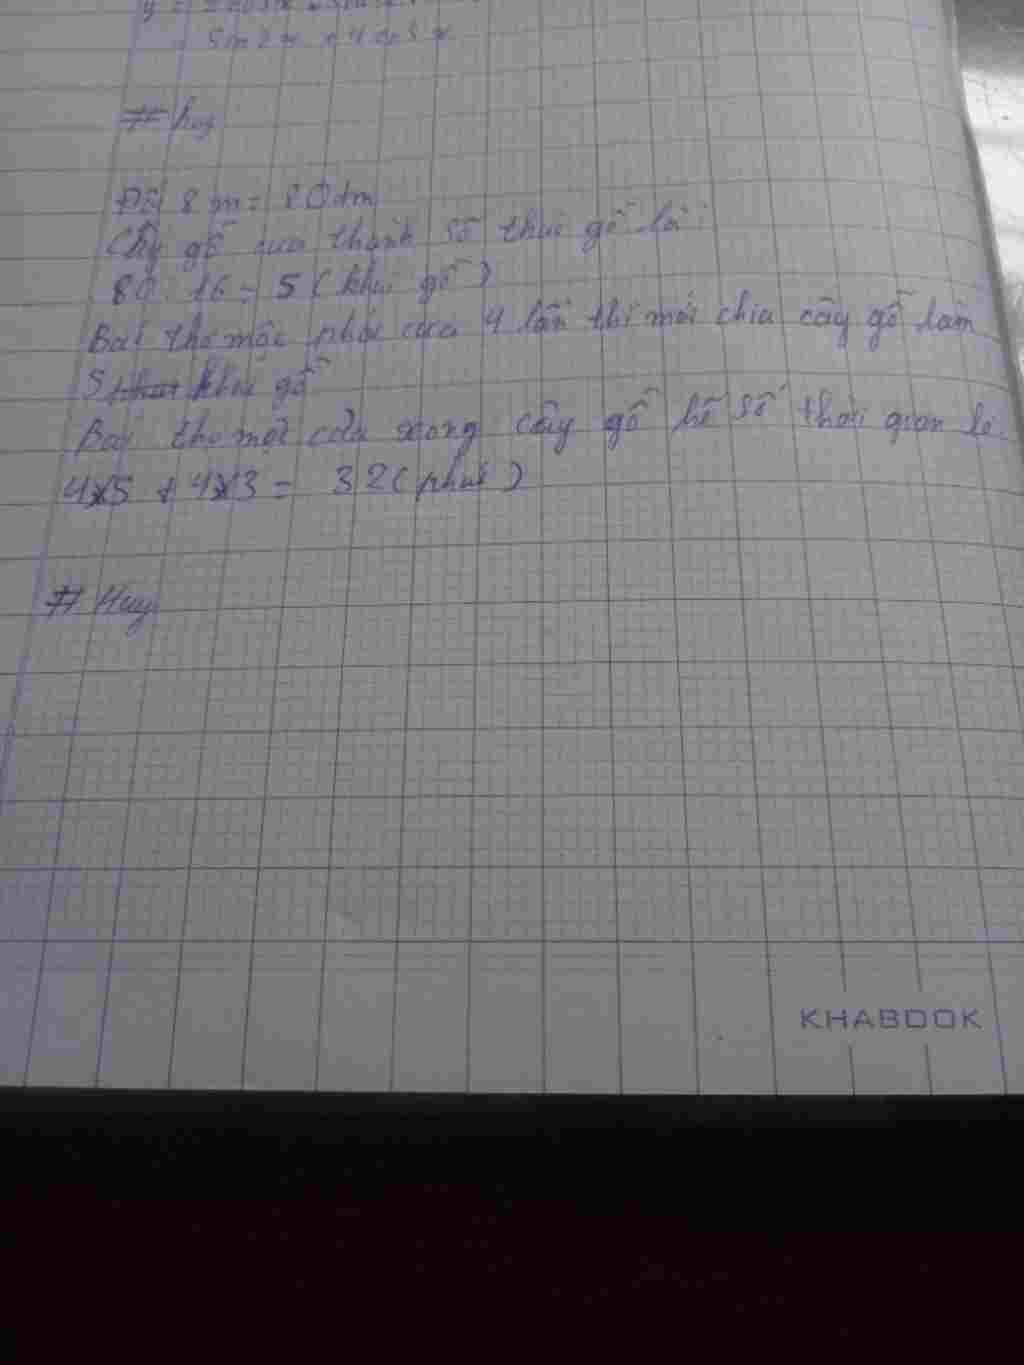 y =
Sin2x + 4cos x
# huy
Đổi 8m = 80dm
Cây gỗ cưa thành số khúc gỗ là:
80 : 16 = 5 (khúc gỗ)
Bác thợ mộc phải cưa 4 lần thì mới chia cây gỗ làm
5 khúc gỗ
Bác thợ mộc cưa xong cây gỗ hế số thời gian là
4x5 + 4x3 = 32 (phút)
# Huy
KHABOOK